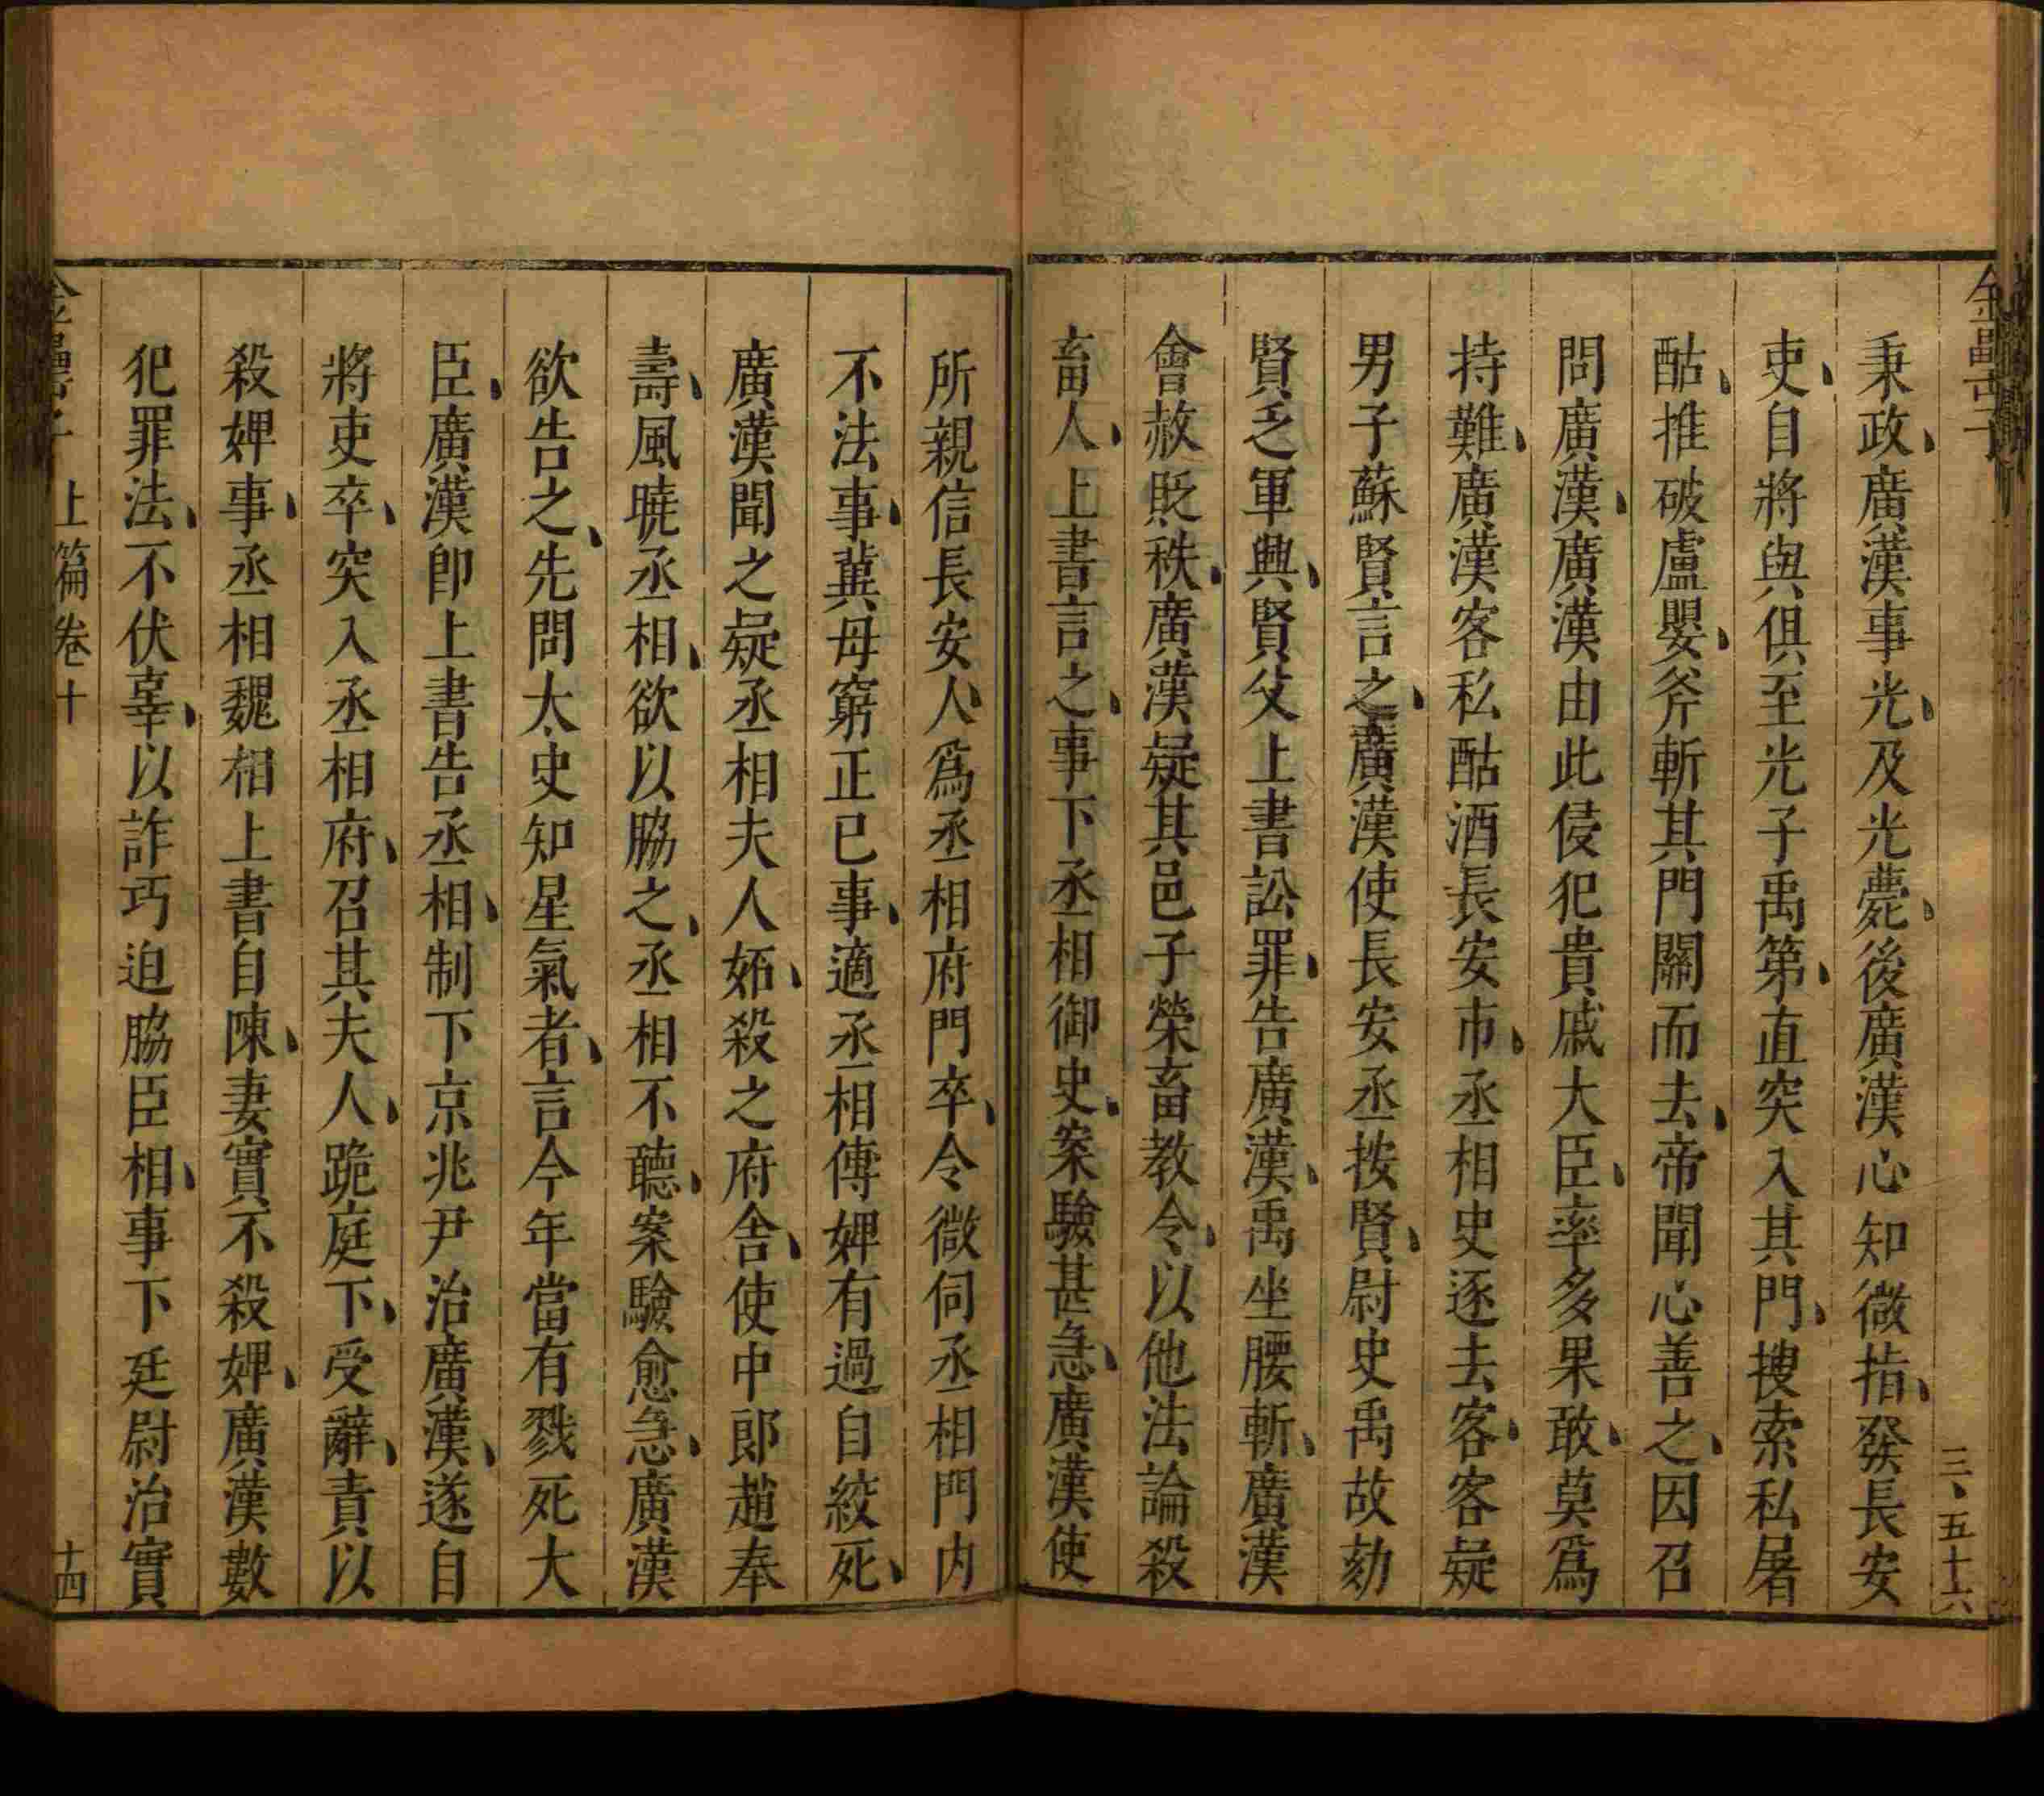 金罍子
三、五十六
秉政、廣漢事光、及光薨、後廣漢心知微指、發長安
吏、自將與俱至光子禹第、直突入其門、搜索私屠
酤、推破盧罌、斧斬其門關而去、帝聞心善之、因召
問廣漢、廣漢由此侵犯貴戚大臣、率多果敢、莫爲
持難、廣漢客私酤酒長安市、丞相史逐去客、客疑
男子蘇賢言之、廣漢使長安丞按賢、尉史禹故劾
賢乏軍興、賢父上書訟罪、告廣漢、禹坐腰斬、廣漢
會赦貶秩、廣漢疑其邑子榮畜教令、以他法論殺
畜人、上書言之、事下丞相御史、案驗甚急、廣漢使
所親信長安人、爲丞相府門卒、令微伺丞相門内
不法事、冀毋窮正已事、適丞相傅婢有過自絞死、
廣漢聞之疑丞相夫人妬、殺之府舍、使中郎趙奉
壽、風曉丞相、欲以脇之、丞相不聽、案驗愈急、廣漢
欲告之、先問太史知星氣者、言今年當有戮死大
臣、廣漢卽上書告丞相、制下京兆尹治廣漢、遂自
將吏卒、突入丞相府、召其夫人、跪庭下、受辭、責以
殺婢事、丞相魏相上書自陳、妻實不殺婢、廣漢數
犯罪法、不伏辜、以詐巧迫脇臣相、事下廷尉治實
金罍子 上篇卷十 十四